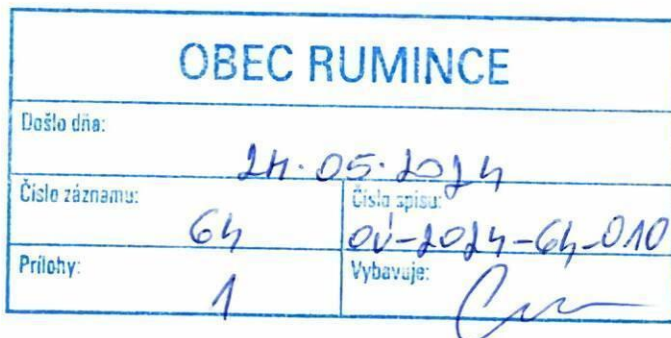 OBEC RUMINCE
Došlo dňa:
24.05.2024
Číslo záznamu:
64
Číslo spisu:
OÚ-2024-64-010
Prílohy:
1
Vybavuje: